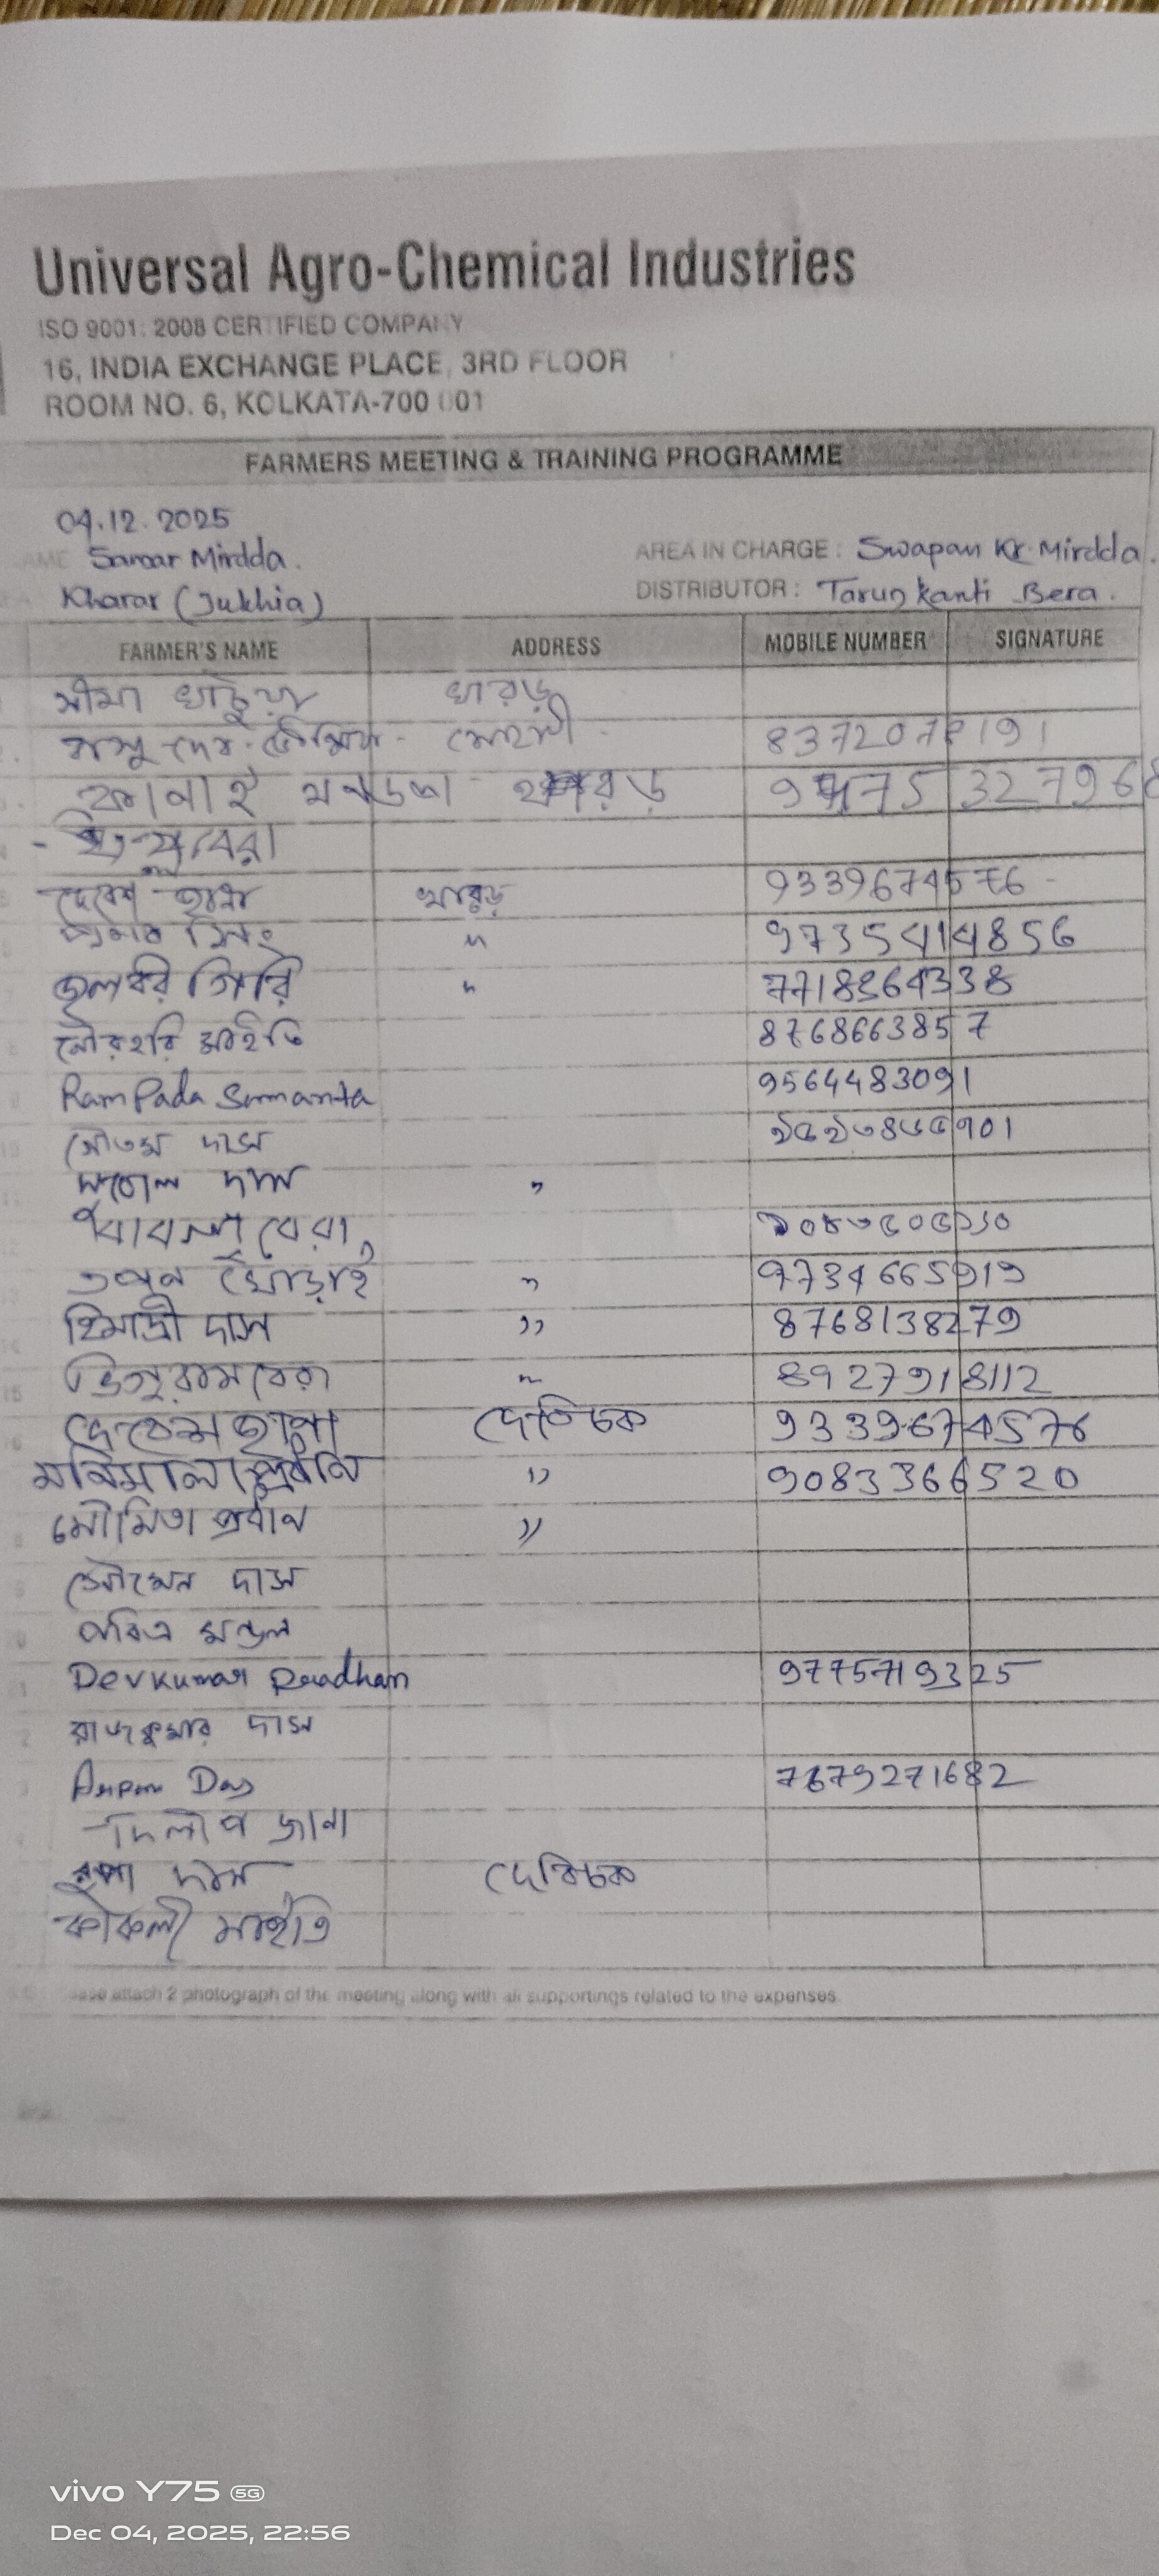 Universal Agro-Chemical Industries
ISO 9001: 2008 CERTIFIED COMPANY
16, INDIA EXCHANGE PLACE, 3RD FLOOR
ROOM NO. 6, KOLKATA-700 001
FARMERS MEETING & TRAINING PROGRAMME
04.12.2025
AME Samar Mirdda. AREA IN CHARGE : Swapan Kr. Mirdda.
Kharar (Jukhia) DISTRIBUTOR : Tarun Kanti Bera.
FARMER'S NAME ADDRESS MOBILE NUMBER SIGNATURE
সীমা খাটুয়া খারড়
8372078191
কানাই মণ্ডল 9475327968
বেরা
দেবেশ খারড় 9339674576
সিং " 9735414856
জলধর গিরি " 7718364338
গৌরহরি মাইতি 8768663857
RamPada Samanta 9564483091
গৌতম দাস
দাস "
বেরা
তপন ঘোড়াই " 9734665919
হিমাদ্রী দাস " 8768138279
বেরা " 8927918112
দেবেশ 9339674576
মনিমালা প্রধান " 9083366520
মৌমিতা প্রধান "
সৌমেন দাস
পবিত্র মন্ডল
Devkumar Pradhan 9775719325
রাজকুমার দাস
Das 7679271682
দিলীপ জানা
রুপা দাস
কাকলী মাইতি
attach 2 photograph of the meeting along with all supportings related to the expenses
vivo Y75 5G
Dec 04, 2025, 22:56